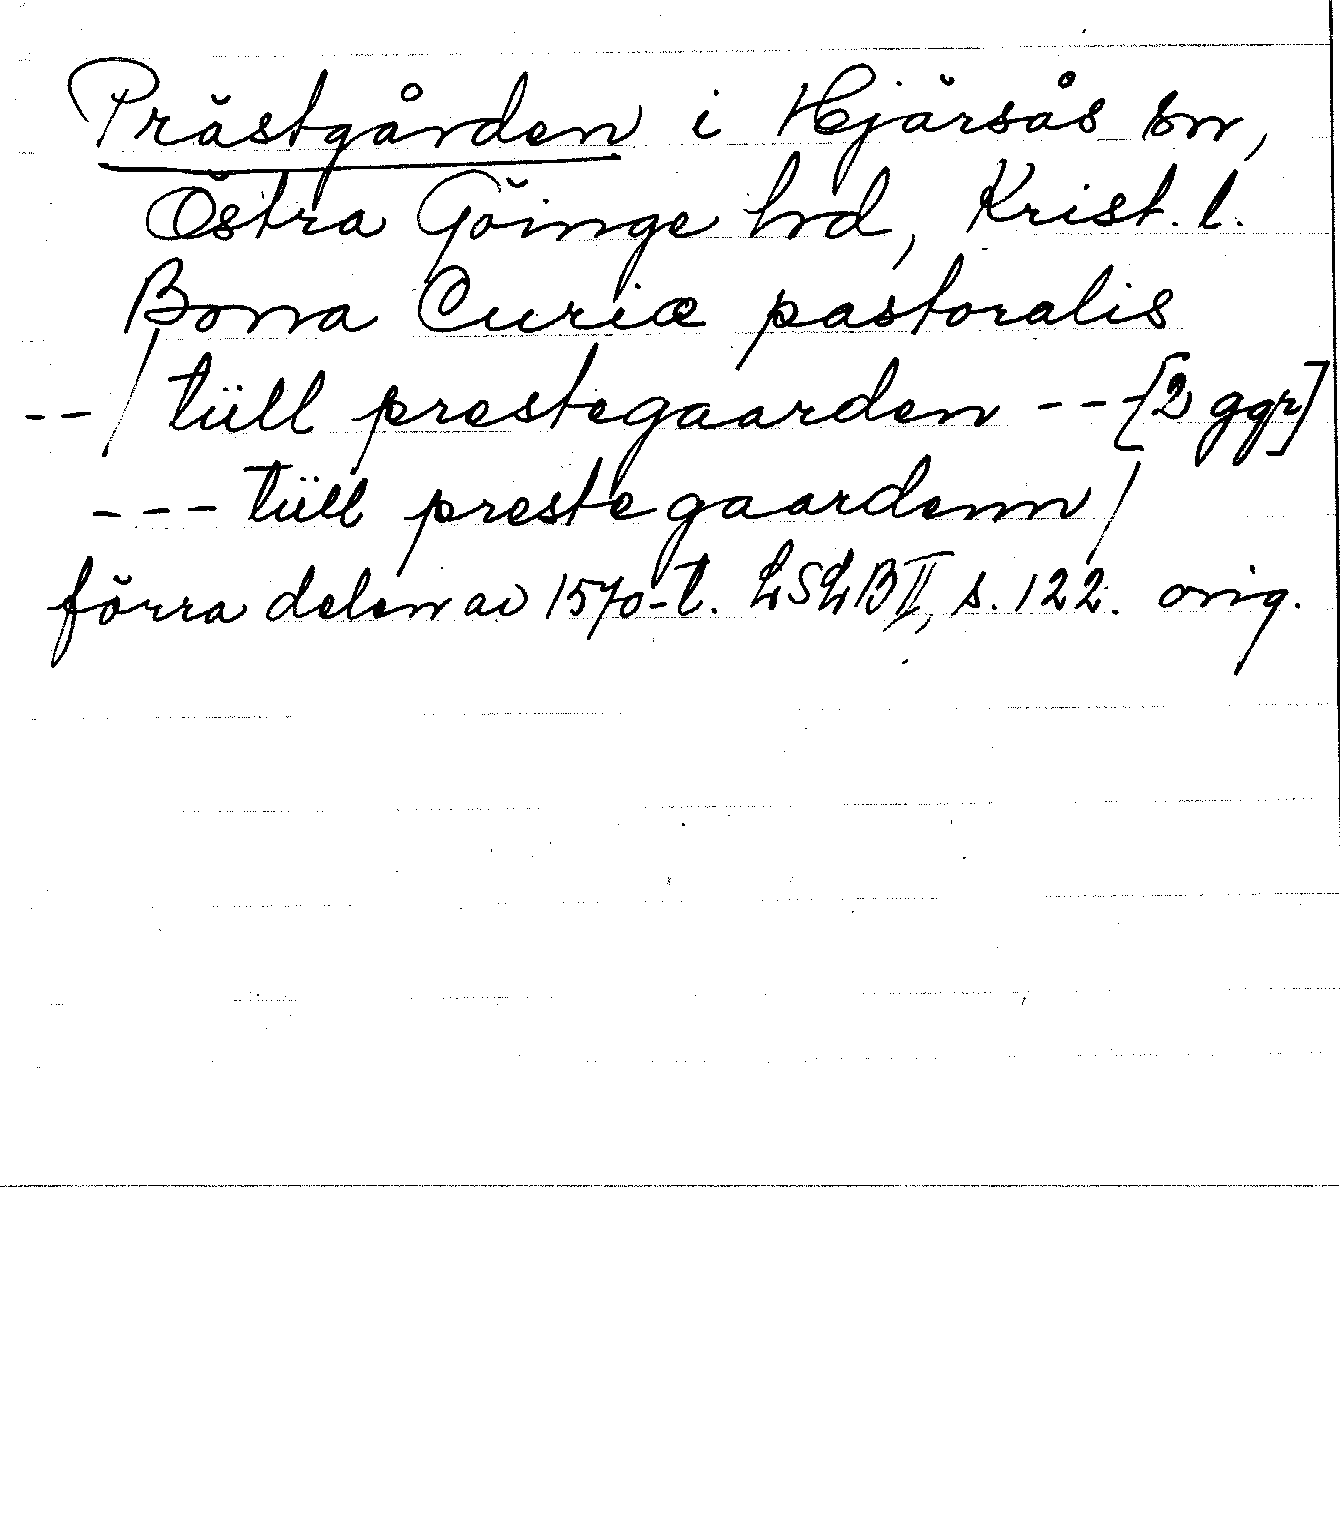 Prästgården i Hjärsås sn,
Östra Göinge hrd, Krist. l.
Bona Curiæ pastoralis
-- / tüll prestegaarden -- [2 ggr]
--- tüll prestegaardenn /
förra delen av 1570-t. LSLB II, s. 122. orig.